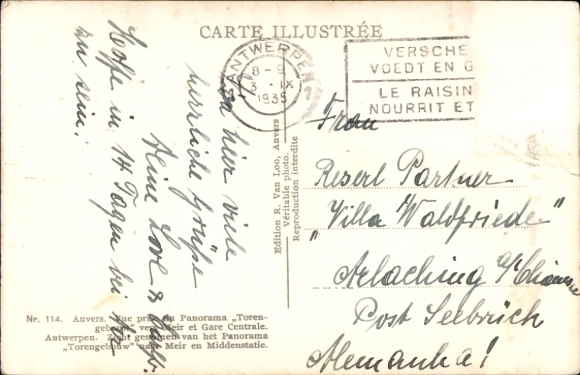 CARTE ILLUSTRÉE
ANTWERPEN 1
8 - 9
3 · IX
1935
VERSCHE
VOEDT EN G
LE RAISIN
NOURRIT ET
Von hier viele
herzliche Grüße
Deine Love &
Hoffe in 14 Tagen bei
zu sein!
Edition R. Van Loo, Anvers
Véritable photo.
Reproduction interdite
Frau
Reserl Partner
"Villa Waldfriede"
Arlaching a/Chiemsee
Post Seebruck
Alemanha!
Nr. 114. Anvers. Vue prise du Panorama „Toren-
gebouw" vers Meir et Gare Centrale.
Antwerpen. Zicht genomen van het Panorama
„Torengebouw" naar Meir en Middenstatie.